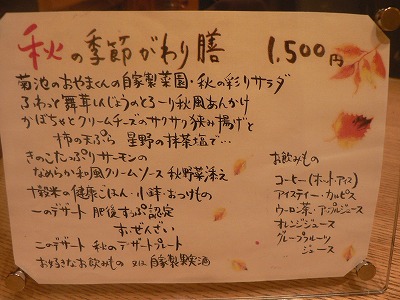 秋の季節がわり膳 1,500円
菊池のおやまくんの自家製菜園・秋の彩りサラダ
ふわっと舞茸しんじょうのとろーり秋風あんかけ
かぼちゃとクリームチーズのサクサク挟み揚げと
柿の天ぷら 星野の抹茶塩で…
きのこたっぷりサーモンの
なめらか和風クリームソース 秋野菜添え
十穀米の健康ごはん・小鉢・おつけもの
一のデザート 肥後すぷ認定
すいぜんざい
二のデザート 秋のデザートプレート
お好きなお飲みもの 又は 自家製果実酒
お飲みもの
コーヒー(ホット・アイス)
アイスティー・カルピス
ウーロン茶・アップルジュース
オレンジジュース
グレープフルーツ
ジュース